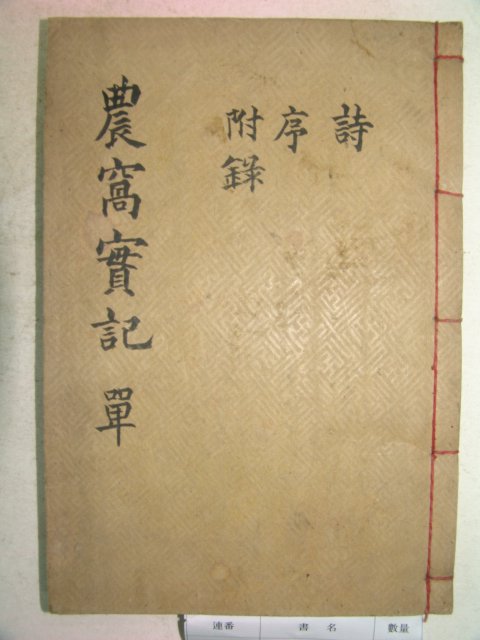 詩
序
附錄
農窩實記 單
連番 書名 數量